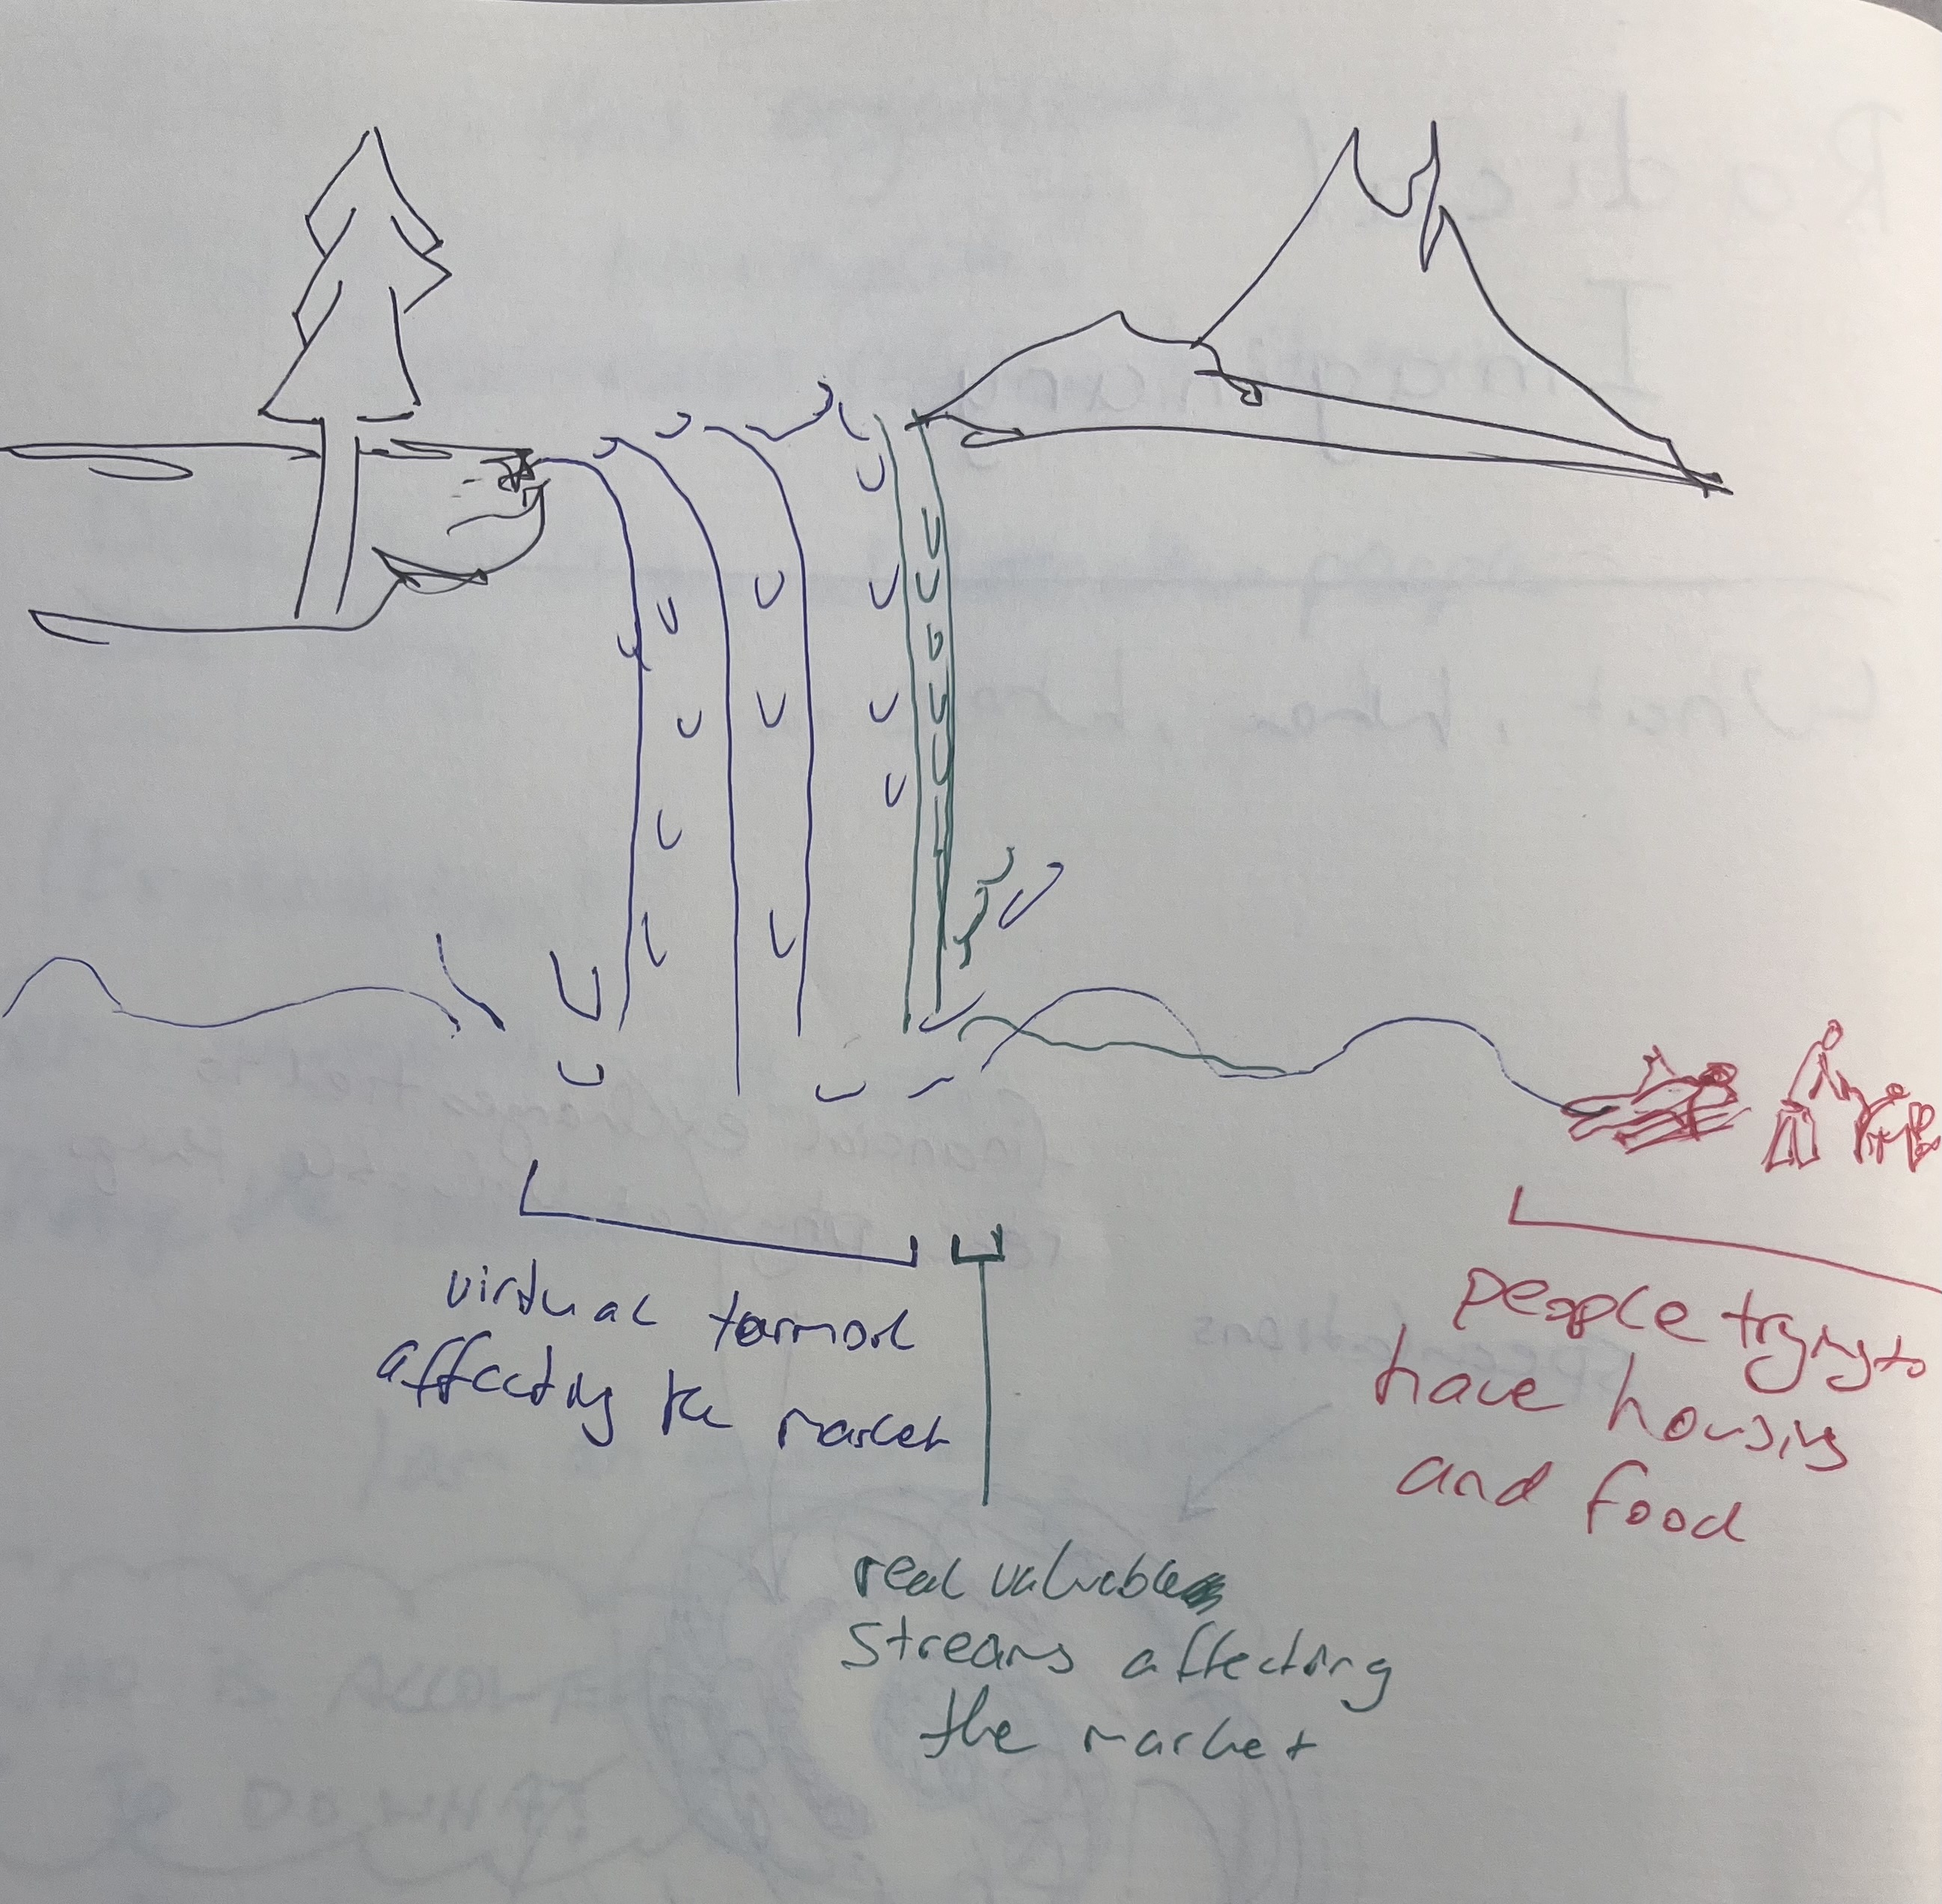 virtual tormoil
affecting the market
people trying to
have housing
and food
real valuable
streams affecting
the market